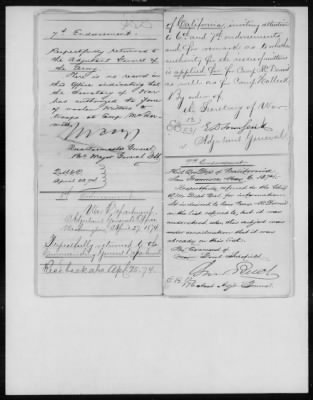 7th Endorsement.
Respectfully returned to
the Adjutant General of
the Army
There is no record in
this Office indicating that
the Secretary of War
has authorized the issue
of woolen mittens to
troops at Camp
Quartermaster General
Bvt. Major General, U.S.A.
April 22nd
8th Endorsement.
War Department
Adjutant General's Office
Washington, April 27, 1874
Respectfully returned to the
General
Apl 28. 74.
of California, inviting attention
to 6th and 7th endorsements,
and for remark as to whose
authority for the issue of mittens
is applied for for Camp McDermit
as well as for Camp Halleck.
By order of
the Secretary of War.
E. D. Townsend
Adjutant General.
9th Endorsement
Hd. Qrs. Dept. of California
San Francisco May 6. 1874.
Respectfully referred to the Chief
Qr. Mr. Dept. Cal. for information.
It is desired to have Camp McDermit
on the list referred to, but it was
understood when this subject was
under consideration that it was
already on this list.
By Command of
Genl. Schofield
Asst. Adjt. General.